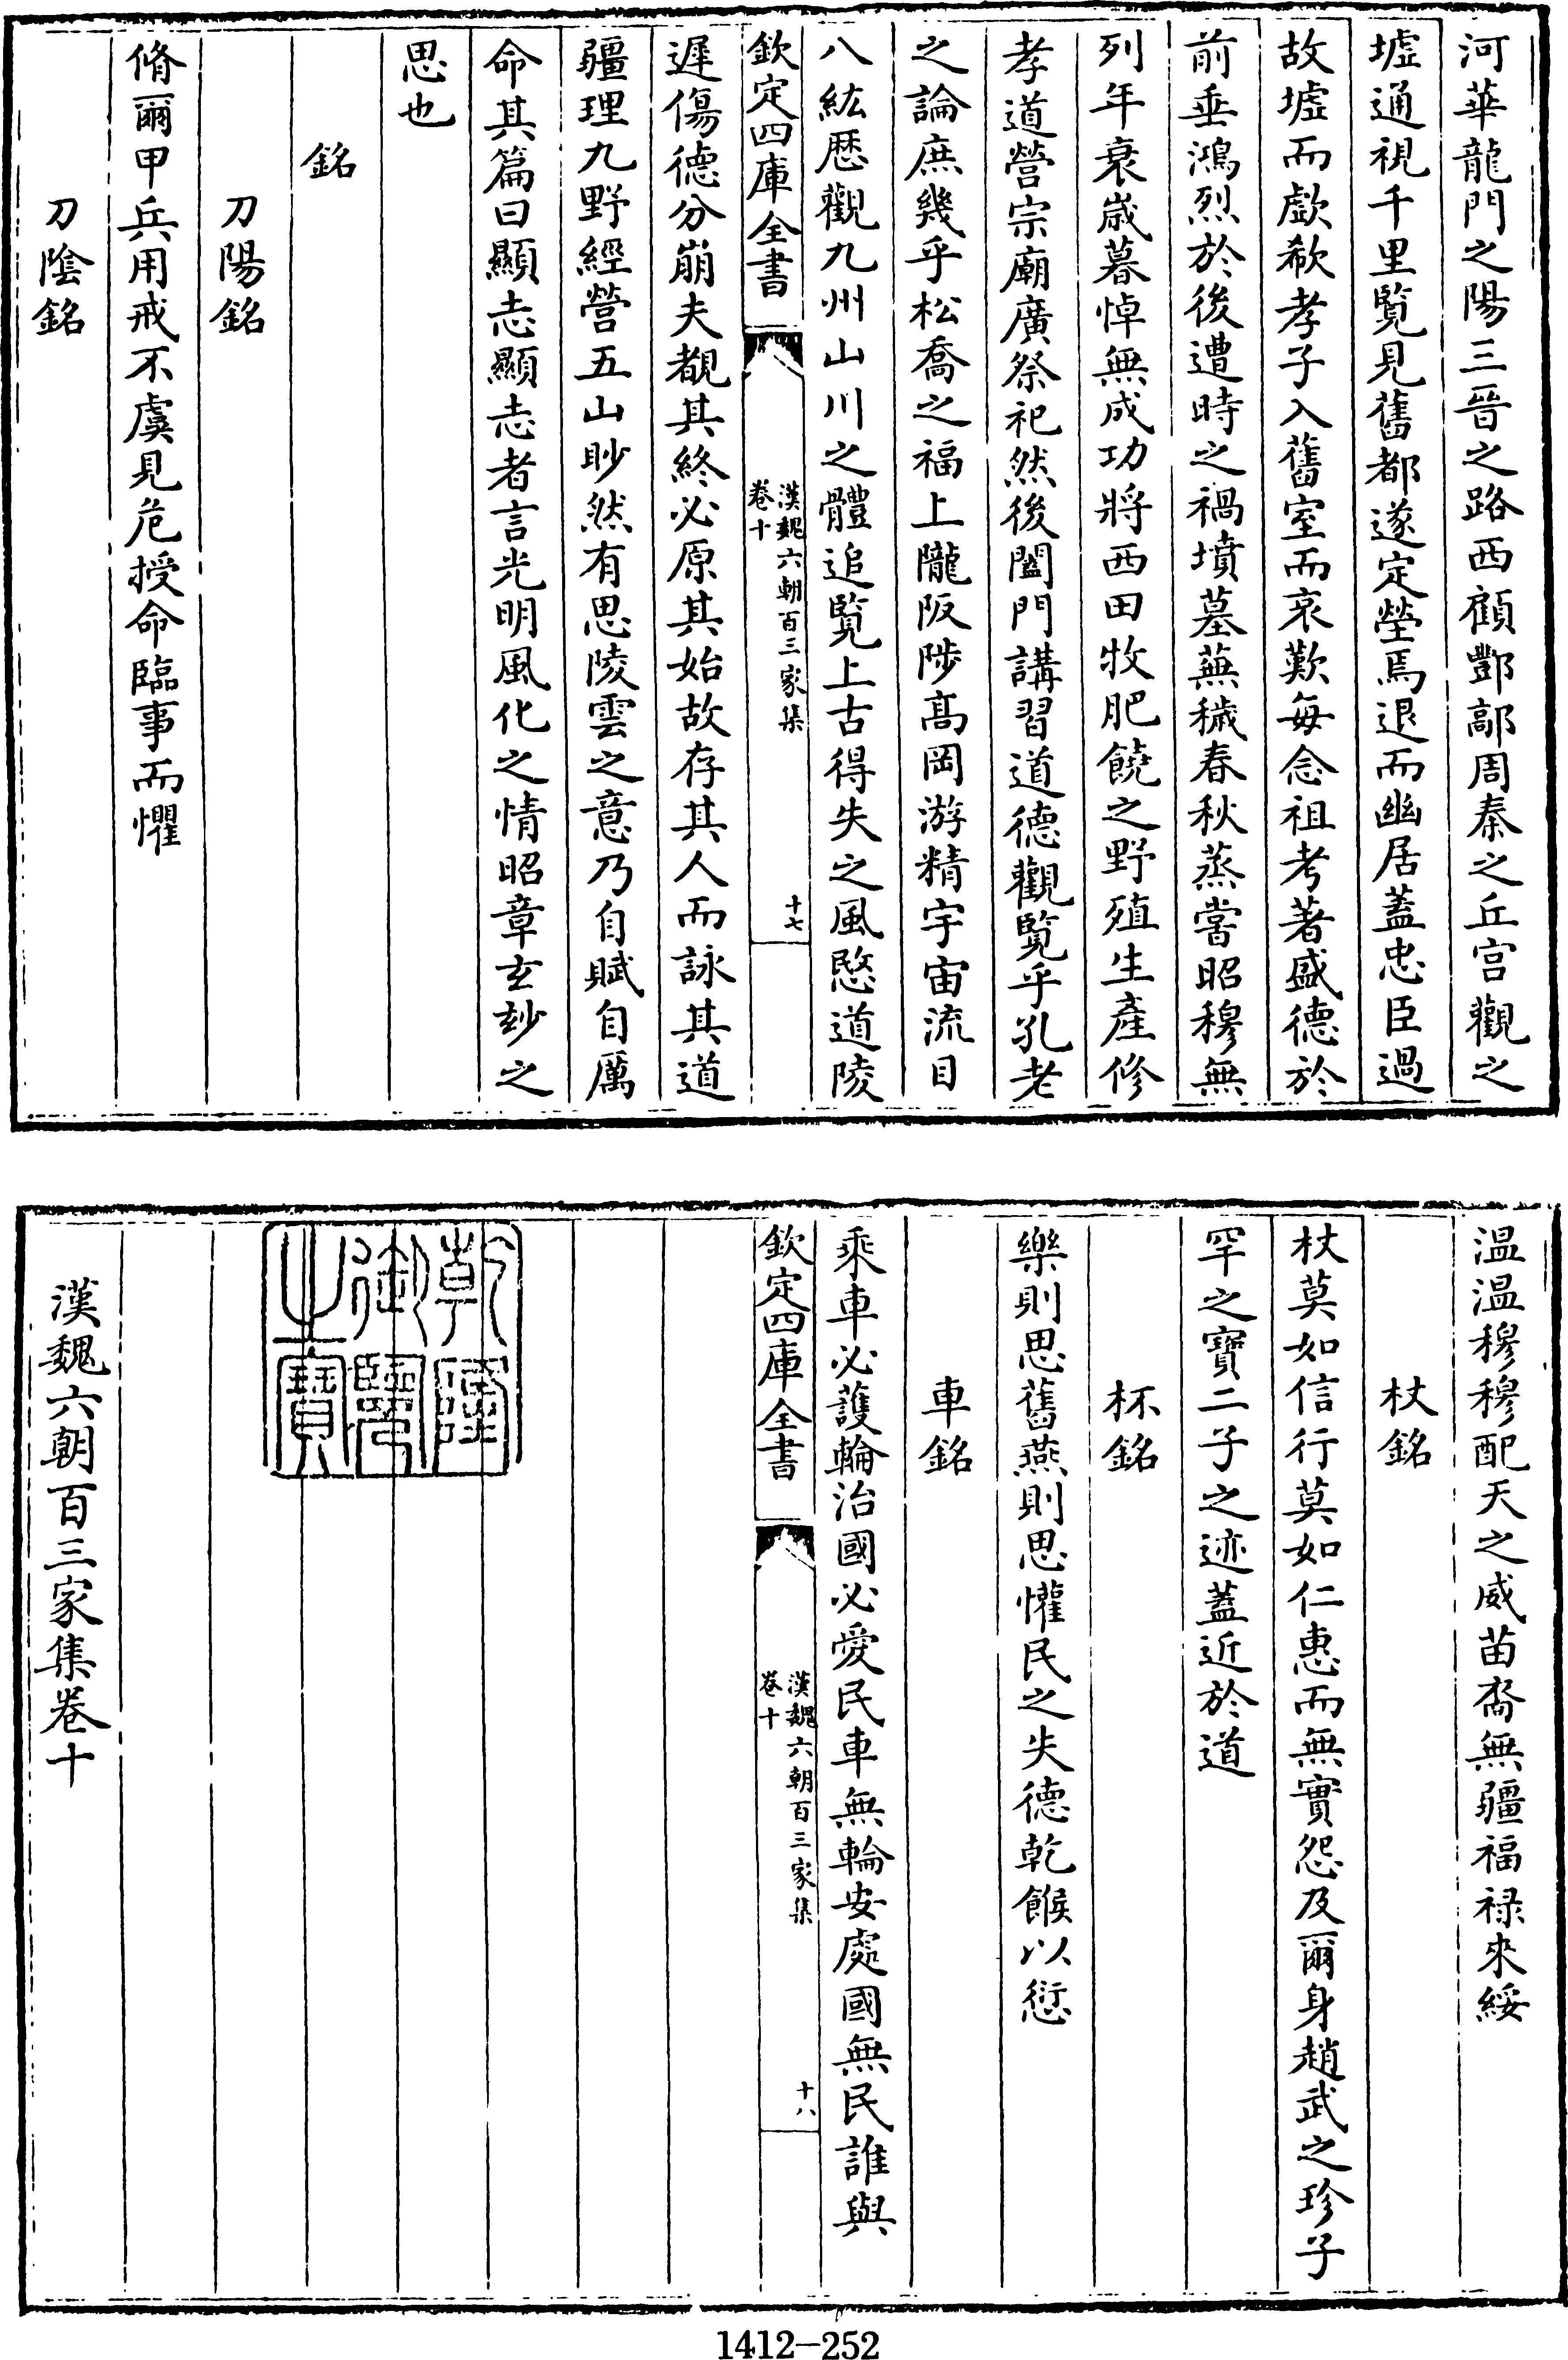 河華龍門之陽三晉之路西顧酆鄗周秦之丘宫觀之
墟通視千里覽見舊都遂定塋焉退而幽居蓋忠臣過
故墟而歔欷孝子入舊室而哀歎每念祖考著盛德於
前垂鴻烈於後遭時之禍墳墓蕪穢春秋蒸嘗昭穆無
列年衰嵗暮悼無成功將西田牧肥饒之野殖生產修
孝道營宗廟廣祭祀然後闔門講習道德觀覽乎孔老
之論庶幾乎松喬之福上隴阪陟髙岡游精宇宙流目
八紘歴觀九州山川之體追覽上古得失之風愍道陵
欽定四庫全書
漢魏六朝百三家集
卷十
十七
遲傷德分崩夫覩其終必原其始故存其人而詠其道
疆理九野經營五山眇然有思陵雲之意乃自賦自厲
命其篇曰顯志顯志者言光明風化之情昭章玄玅之
思也
銘
刀陽銘
脩爾甲兵用戒不虞見危授命臨事而懼
刀隂銘
温温穆穆配天之威苗裔無疆福禄來綏
杖銘
杖莫如信行莫如仁惠而無實怨及爾身趙武之珍子
罕之寶二子之迹蓋近於道
杯銘
樂則思舊燕則思懽民之失德乾餱以愆
車銘
乘車必護輪治國必愛民車無輪安處國無民誰與
欽定四庫全書
漢魏六朝百三家集
卷十
十八
乾隆
御覽
之寶
漢魏六朝百三家集卷十
1412-252